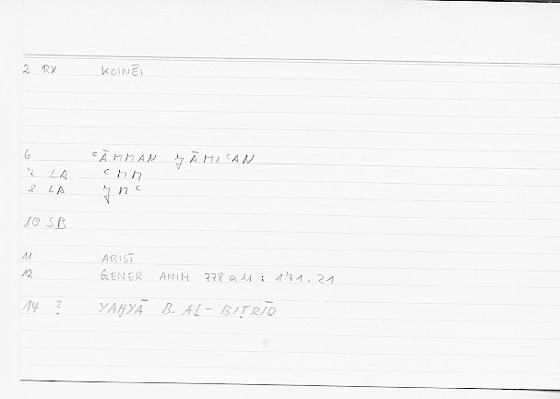 2 RX KOINĒI
6 ʿĀMMAN ǦĀMIʿAN
7 LA ʿMM
8 LA ǦMʿ
10 SB
11 ARIST
12 GENER ANIM 778 a 11 : 171.21
14 ? YAḤYĀ B. AL-BIṬRĪQ